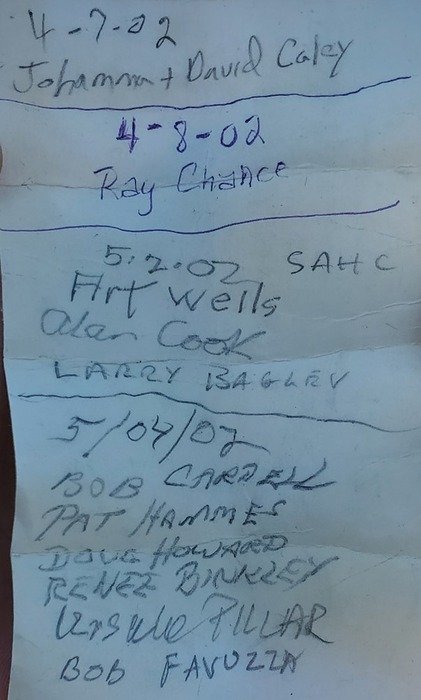 4-7-02
Johanna + David Caley
4-8-02
Ray Chance
5.2.02 SAHC
Art Wells
Alan Cook
LARRY BAGLEY
5/04/02
BOB CARDELL
PAT HAMMES
DOUG HOWARD
RENEE BINKLEY
Ursula PILLAR
BOB FAVUZZA